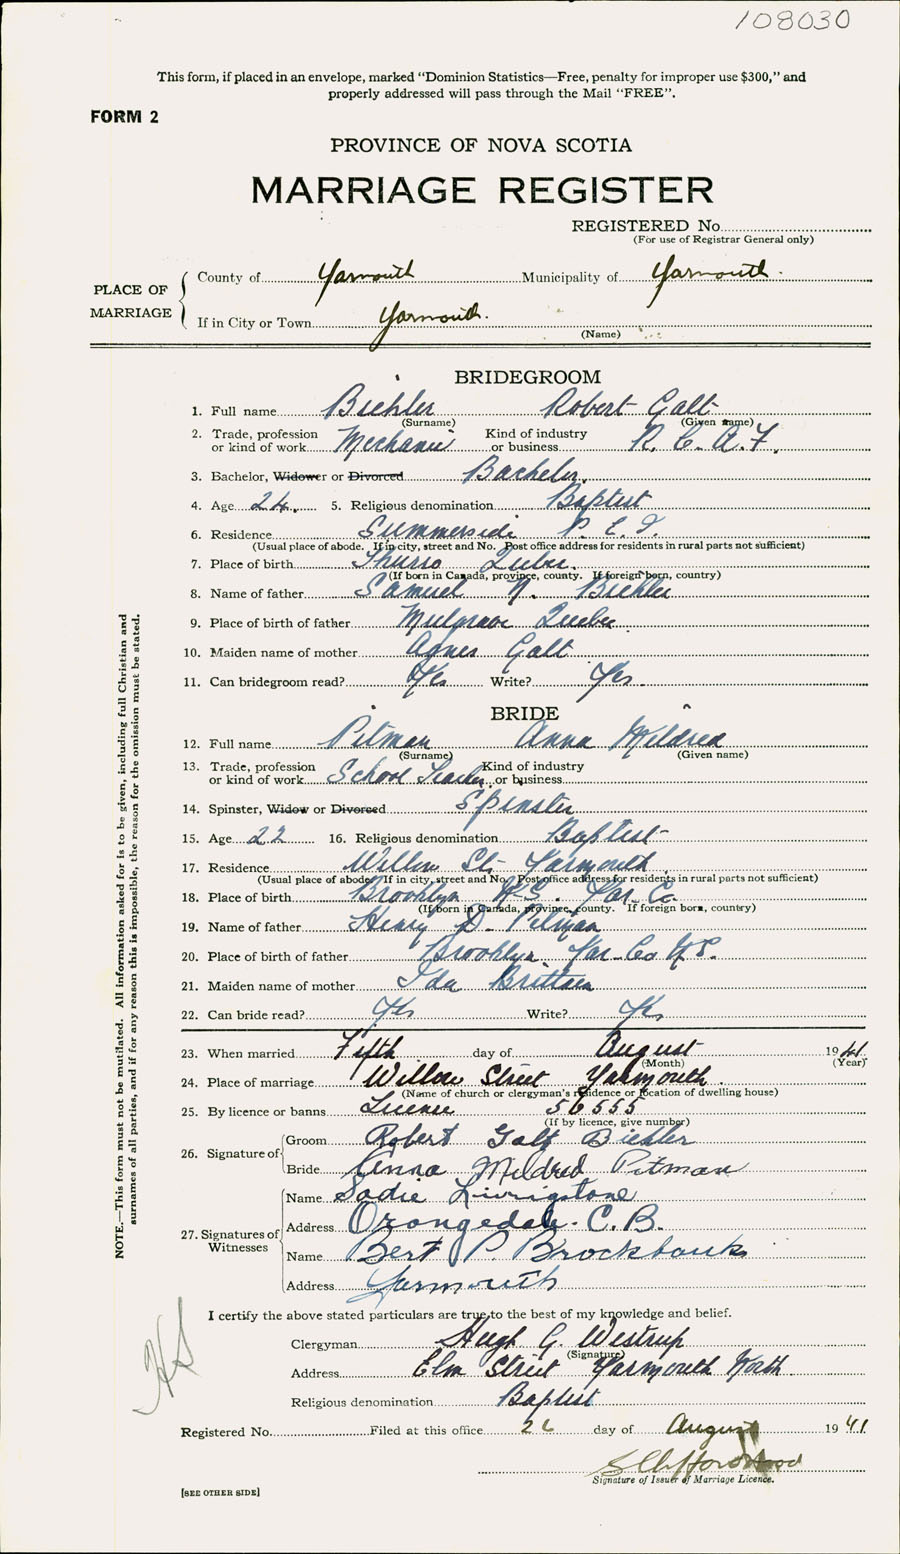 108030
This form, if placed in an envelope, marked "Dominion Statistics—Free, penalty for improper use $300," and
properly addressed will pass through the Mail "FREE".
FORM 2
PROVINCE OF NOVA SCOTIA
MARRIAGE REGISTER
REGISTERED No.
(For use of Registrar General only)
PLACE OF MARRIAGE
County of Yarmouth Municipality of Yarmouth.
If in City or Town Yarmouth.
(Name)
BRIDEGROOM
1. Full name Biehler Robert Galt
(Surname) (Given name)
2. Trade, profession or kind of work Mechanic Kind of industry or business R.C.A.F.
3. Bachelor, Widower or Divorced Bachelor.
4. Age 24. 5. Religious denomination Baptist
6. Residence Summerside P.E.I.
(Usual place of abode. If in city, street and No. Post office address for residents in rural parts not sufficient)
7. Place of birth Thurso Quebec.
(If born in Canada, province, county. If foreign born, country)
8. Name of father Samuel N. Biehler
9. Place of birth of father Mulgrave Quebec
10. Maiden name of mother Agnes Galt
11. Can bridegroom read? Yes Write? Yes.
BRIDE
12. Full name Pitman Anna Mildred
(Surname) (Given name)
13. Trade, profession or kind of work School Teacher Kind of industry or business
14. Spinster, Widow or Divorced Spinster
15. Age 22 16. Religious denomination Baptist
17. Residence Willow St. Yarmouth
(Usual place of abode. If in city, street and No. Post office address for residents in rural parts not sufficient)
18. Place of birth Brooklyn N.S. Yar. Co.
(If born in Canada, province, county. If foreign born, country)
19. Name of father Henry D. Pitman
20. Place of birth of father Brooklyn. Yar. Co. N.S.
21. Maiden name of mother Ida Brittain
22. Can bride read? Yes Write? Yes
23. When married Fifth day of August 1941
(Month) (Year)
24. Place of marriage Willow Street Yarmouth.
(Name of church or clergyman's residence or location of dwelling house)
25. By licence or banns License 56555
(If by licence, give number)
26. Signature of
Groom Robert Galt Biehler
Bride Anna Mildred Pitman
27. Signatures of Witnesses
Name Sadie Livingstone
Address Orangedale. C.B.
Name Bert P. Brockbank
Address Yarmouth
I certify the above stated particulars are true to the best of my knowledge and belief.
Clergyman Hugh G. Westrup
(Signature)
Address Elm Street Yarmouth North.
Religious denomination Baptist
Registered No. Filed at this office 26 day of August 1941
S Clifford Hood
Signature of Issuer of Marriage Licence.
[SEE OTHER SIDE]
NOTE.—This form must not be mutilated. All information asked for is to be given, including full Christian and
surnames of all parties, and if for any reason this is impossible, the reason for the omission must be stated.